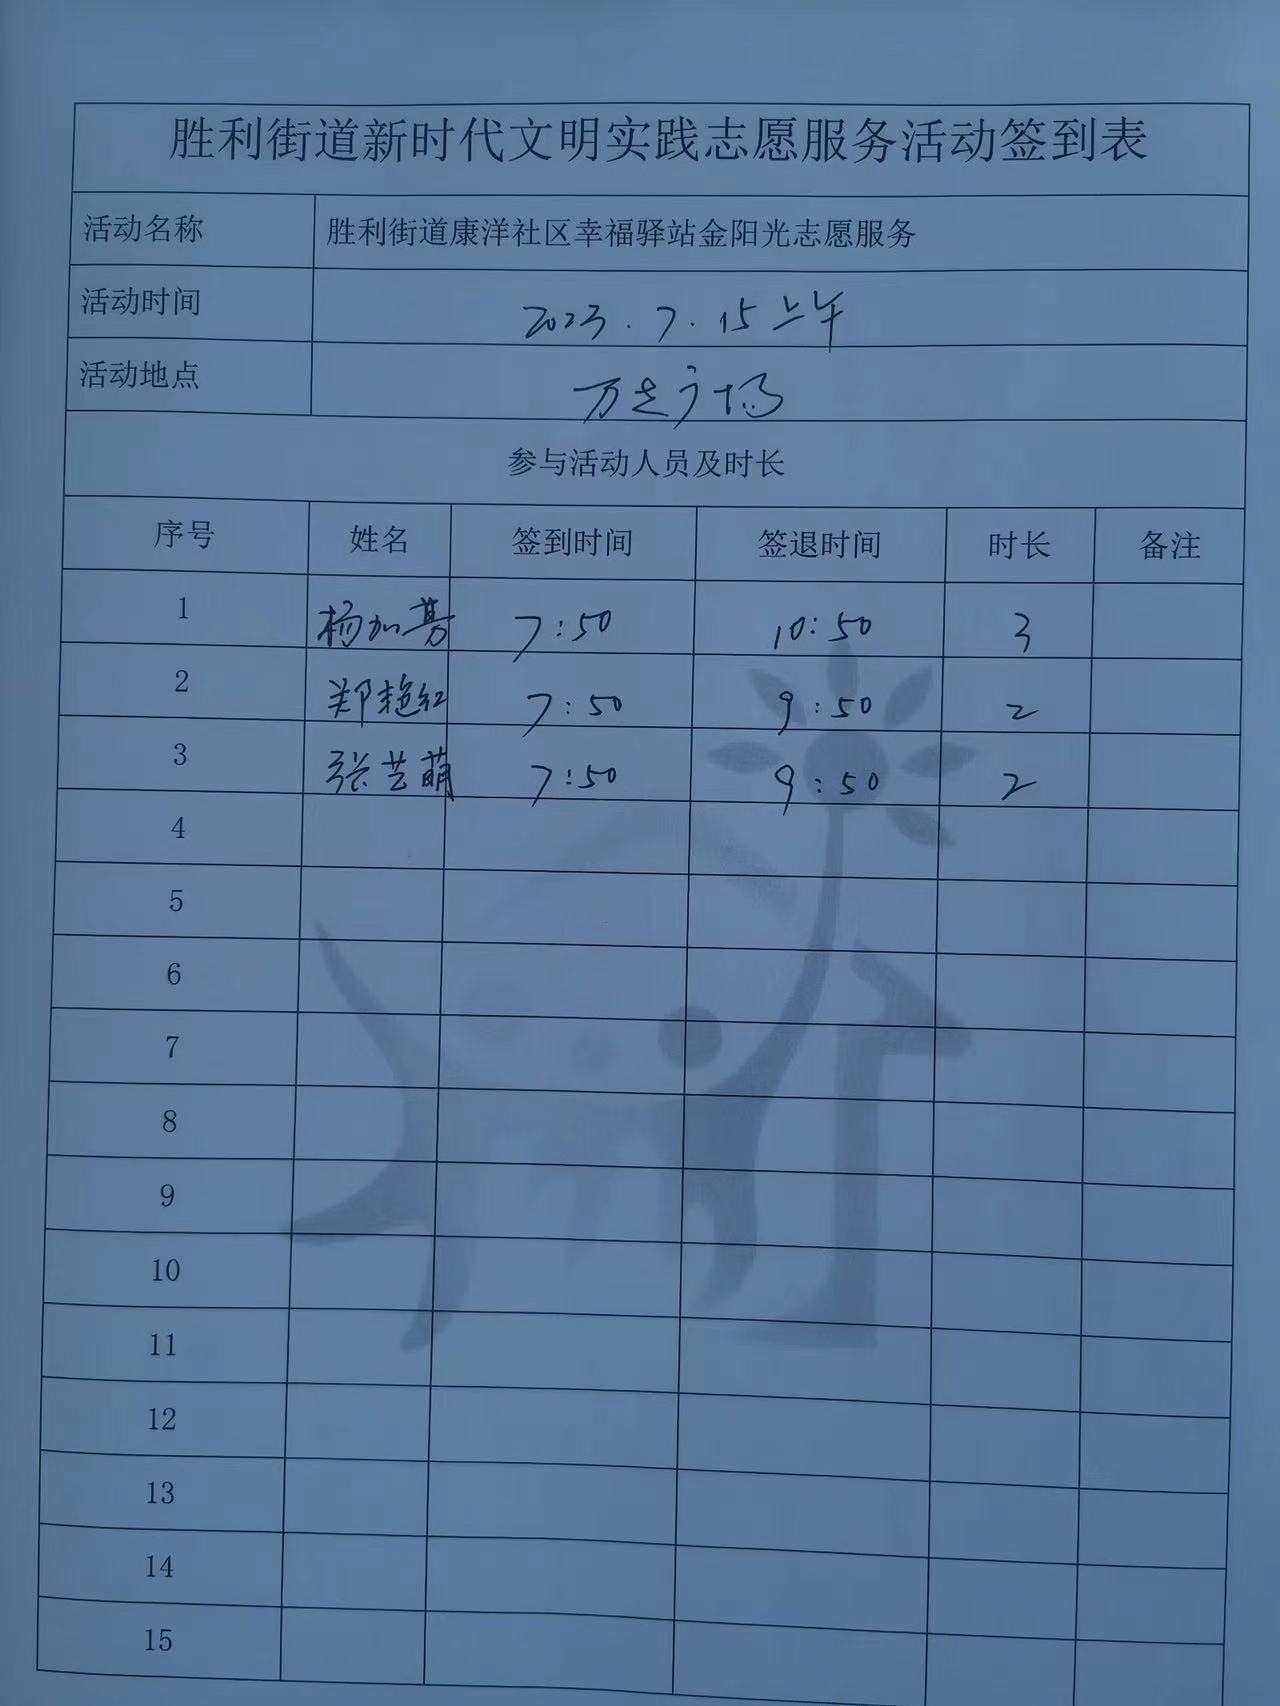 胜利街道新时代文明实践志愿服务活动签到表
活动名称 胜利街道康洋社区幸福驿站金阳光志愿服务
活动时间 2023.7.15上午
活动地点 万达广场
参与活动人员及时长
序号 姓名 签到时间 签退时间 时长 备注
1 杨加 7:50 10:50 3
2 郑艳红 7:50 9:50 2
3 张艺萌 7:50 9:50 2
4
5
6
7
8
9
10
11
12
13
14
15